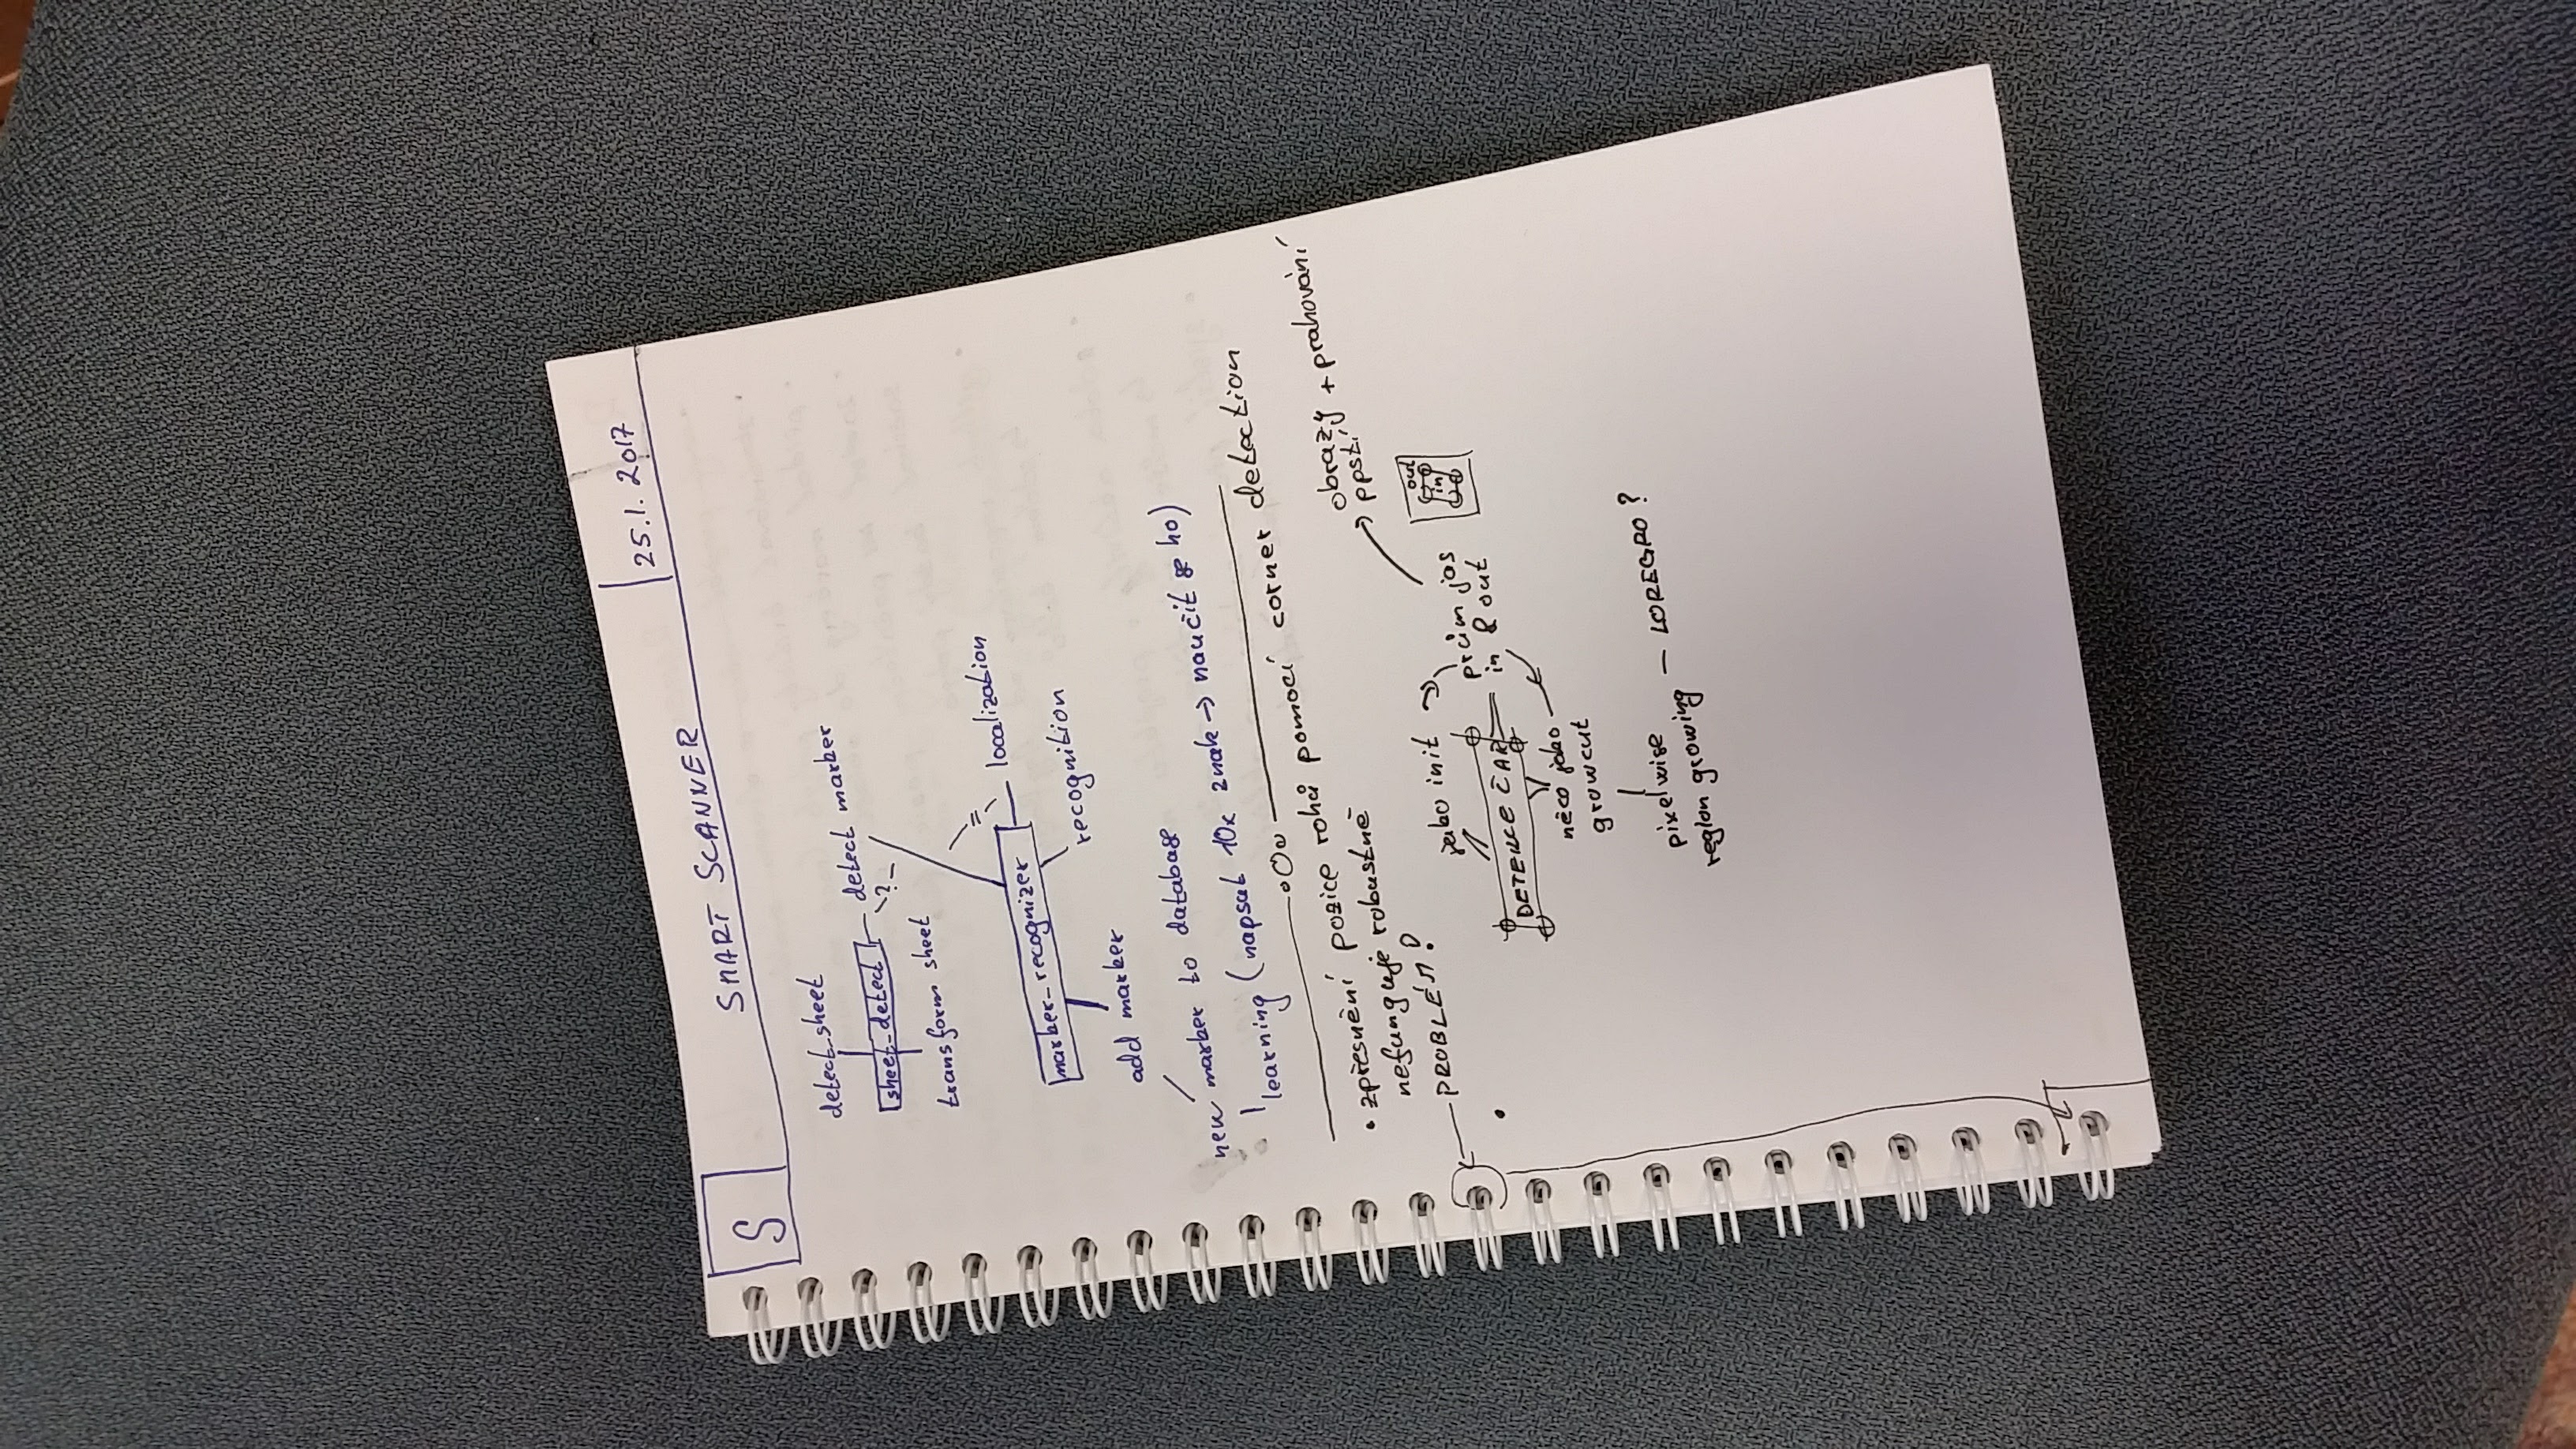 S
SMART SCANNER
25.1. 2017
detect_sheet
sheet_detect
detect marker
?
transform sheet
=
localization
marker_recognizer
recognition
add marker
new marker to database
learning (napsat 10x znak → naučit se ho)
• zpřesnění pozice rohů pomocí corner detection
nefunguje robustně
PROBLÉM!
obrazy + prahování
ppstí
jako init
prům jas
in & out
out
in
DETEKCE ČAR
něco jako
growcut
pixelwise
region growing — LOREGRO?